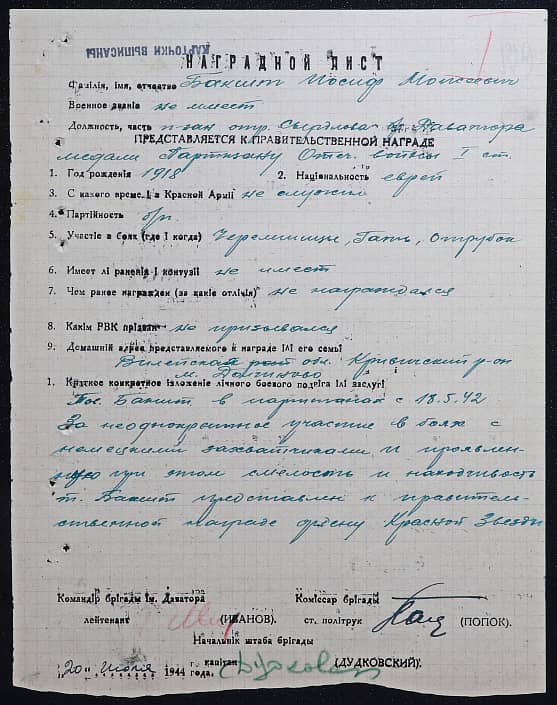 КАРТОЧКИ ВЫПИСАНЫ
НАГРАДНОЙ ЛИСТ
Фамілія, імя, отчество Бакшт Иосиф Моисеевич
Военное званіе не имеет
Должность, часть п-зан отр. Свердлова бр. Даватора
ПРЕДСТАВЛЯЕТСЯ К ПРАВИТЕЛЬСТВЕННОЙ НАГРАДЕ
медали Партизану Отеч. войны I ст.
1. Год рождения 1918 2. Національность еврей
3. С какого времені в Красной Арміі не служил
4. Партійность б/п.
5. Участіе в боях (где і когда) Черемшицы, Гать, Отрубок
6. Имеет лі раненія і контузіі не имеет
7. Чем ранее награжден (за какіе отлічія) не награждался
8. Какім РВК прізван не призывался
9. Домашній адрес представляемого к награде ілі его семьі
Вилейская обл. Кривичский р-он
м. Долгиново
1. Краткое конкретное ізложеніе лічного боевого подвіга ілі заслуг
Тов. Бакшт в партизанах с 18.5.42
За неоднократное участие в боях с
немецкими захватчиками и проявлен-
ную при этом смелость и находчивость
т. Бакшт представлен к правитель-
ственной награде ордену Красной Звезды
Командір брігады ім. Даватора Коміссар брігады
лейтенант (ИВАНОВ). ст. політрук (ПОПОК).
Начальнік штаба брігады
капітан (ДУДКОВСКИЙ).
"20" июля 1944 года.